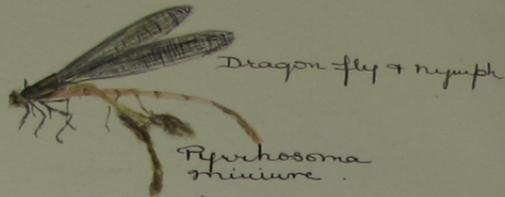 Dragon fly & nymph
Pyrrhosoma
miniure.